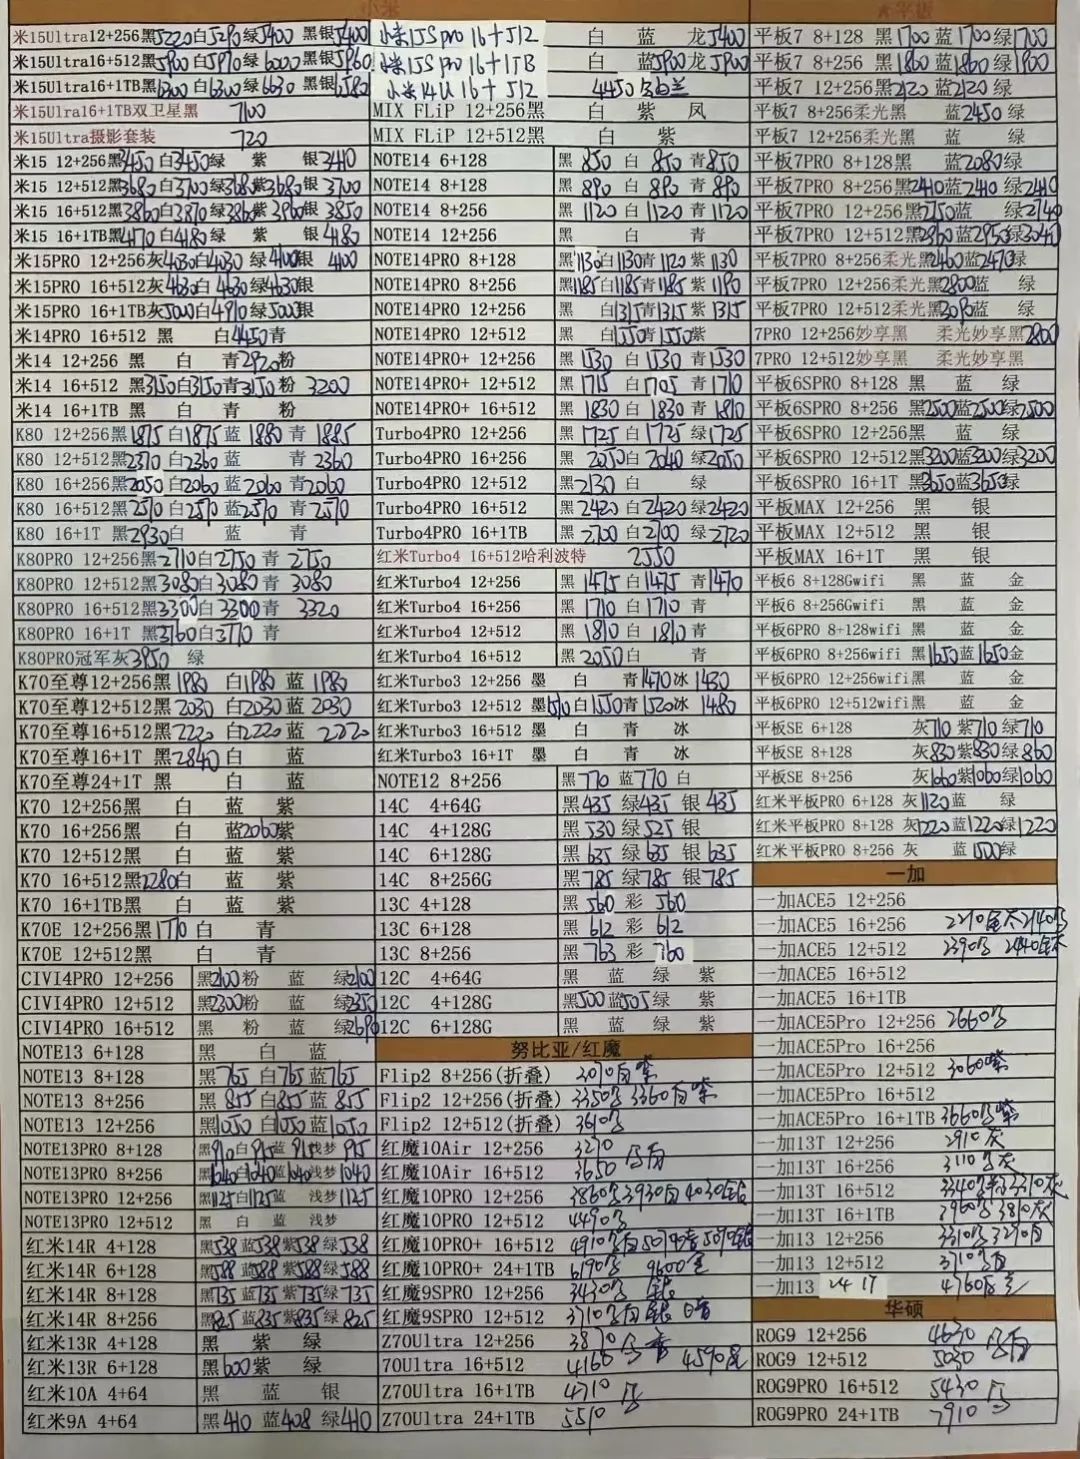 小米
米15Ultra12+256黑5220白5290绿5400 黑银5400
米15Ultra16+512黑5900白5970绿6020黑银5960
米15Ultra16+1TB黑6300白6300绿6630黑银6580
米15Ultra16+1TB双卫星黑 7100
米15Ultra摄影套装 720
米15 12+256黑3450白3450绿 紫 银3410
米15 12+512黑3680白3700绿3680紫3680银 3700
米15 16+512黑3860白3870绿3860紫3960银 3850
米15 16+1TB黑4170白4180绿 紫 银4180
米15PRO 12+256灰4030白4030 绿4100银 4100
米15PRO 16+512灰4630白4630绿4630银
米15PRO 16+1TB灰5000白4910绿5000银
米14PRO 16+512 黑 白4450青
米14 12+256 黑 白 青2920粉
米14 16+512 黑3150白3150青3150粉 3200
米14 16+1TB 黑 白 青 粉
K80 12+256黑1875白1875蓝1880青 1885
K80 12+512黑2370白2360蓝 青2360
K80 16+256黑2050白2060蓝2060青2060
K80 16+512黑2570白2570蓝2570青2570
K80 16+1T 黑2930白 蓝 青
K80PRO 12+256黑2710白2750青 2750
K80PRO 12+512黑3080白3080青 3080
K80PRO 16+512黑3300白3300青 3320
K80PRO 16+1T 黑3760白3770青
K80PRO冠军灰3950 绿
K70至尊12+256黑1980 白1980蓝 1980
K70至尊12+512黑2030 白2030蓝 2030
K70至尊16+512黑2220 白2220蓝 2220
K70至尊16+1T 黑2840白 蓝
K70至尊24+1T 黑 白 蓝
K70 12+256黑 白 蓝 紫
K70 16+256黑 白 蓝2060紫
K70 12+512黑 白 蓝 紫
K70 16+512黑2280白 蓝 紫
K70 16+1TB黑 白 蓝 紫
K70E 12+256黑1770白 青
K70E 12+512黑 白 青
CIVI4PRO 12+256 黑2100粉 蓝 绿2100
CIVI4PRO 12+512 黑2300粉 蓝 绿2350
CIVI4PRO 16+512 黑 粉 蓝 绿2690
NOTE13 6+128 黑 白 蓝
NOTE13 8+128 黑765白765蓝765
NOTE13 8+256 黑855白855蓝855
NOTE13 12+256 黑1050白1050蓝1050
NOTE13PRO 8+128 黑910白915蓝915浅梦915
NOTE13PRO 8+256 黑1040白1040蓝1040浅梦1040
NOTE13PRO 12+256 黑1125白1125蓝 浅梦1125
NOTE13PRO 12+512 黑 白 蓝 浅梦
红米14R 4+128 黑538蓝538紫538绿538
红米14R 6+128 黑588蓝588紫588绿588
红米14R 8+128 黑735蓝735紫735绿735
红米14R 8+256 黑825蓝835紫835绿825
红米13R 4+128 黑 紫 绿
红米13R 6+128 黑600紫 绿
红米10A 4+64 黑 蓝 银
红米9A 4+64 黑410蓝408绿410
小米15S pro 16+512 白 蓝 龙5400
小米15S pro 16+1TB 白 蓝5900龙5900
小米14U 16+512 4450白兰
MIX FLiP 12+256黑 白 紫 凤
MIX FLiP 12+512黑 白 紫
NOTE14 6+128 黑850白850青850
NOTE14 8+128 黑890白890青890
NOTE14 8+256 黑1120白1120青1120
NOTE14 12+256 黑 白 青
NOTE14PRO 8+128 黑1130白1130青1120紫1130
NOTE14PRO 8+256 黑1185白1185青1185紫1190
NOTE14PRO 12+256 黑 白1315青1315紫1315
NOTE14PRO 12+512 黑 白1550青1550紫
NOTE14PRO+ 12+256 黑1530白1530青1530
NOTE14PRO+ 12+512 黑1715白1705青1710
NOTE14PRO+ 16+512 黑1830白1830青1810
Turbo4PRO 12+256 黑1725白1725绿1725
Turbo4PRO 16+256 黑2050白2040绿2050
Turbo4PRO 12+512 黑2130白 绿
Turbo4PRO 16+512 黑2420白2420绿2420
Turbo4PRO 16+1TB 黑2700白2700绿2720
红米Turbo4 16+512哈利波特 2550
红米Turbo4 12+256 黑1475白1475青1470
红米Turbo4 16+256 黑1710白1710青
红米Turbo4 12+512 黑1810白1810青
红米Turbo4 16+512 黑2050白 青
红米Turbo3 12+256 墨 白 青1470冰1430
红米Turbo3 12+512 墨1510白1550青1520冰1480
红米Turbo3 16+512 墨 白 青 冰
红米Turbo3 16+1T 墨 白 青 冰
NOTE12 8+256 黑770蓝770白
14C 4+64G 黑435绿435银435
14C 4+128G 黑530绿525银
14C 6+128G 黑635绿635银635
14C 8+256G 黑785绿785银785
13C 4+128 黑560彩560
13C 6+128 黑612彩612
13C 8+256 黑763彩760
12C 4+64G 黑 蓝 绿 紫
12C 4+128G 黑500蓝505绿 紫
12C 6+128G 黑 蓝 绿 紫
努比亚/红魔
Flip2 8+256(折叠) 3070白紫
Flip2 12+256(折叠) 3350黑3360白紫
Flip2 12+512(折叠) 3610黑
红魔10Air 12+256 3270
红魔10Air 16+512 3650 黑白
红魔10PRO 12+256 3860黑3930白4030银
红魔10PRO 12+512 4490黑
红魔10PRO+ 16+512 4910黑
红魔10PRO+ 24+1TB 6190黑
红魔9SPRO 12+256 3430黑 银
红魔9SPRO 12+512 3710黑白
Z70Ultra 12+256 3870
70Ultra 16+512 4160黑 4590
Z70Ultra 16+1TB 4710黑
Z70Ultra 24+1TB 5510黑
平板
平板7 8+128 黑1700蓝1700绿1700
平板7 8+256 黑1860蓝1860绿1900
平板7 12+256黑2120蓝2120绿
平板7 8+256柔光黑 蓝2450绿
平板7 12+256柔光黑 蓝 绿
平板7PRO 8+128黑 蓝2080绿
平板7PRO 8+256黑2410蓝2410绿2410
平板7PRO 12+256黑2750蓝 绿2740
平板7PRO 12+512黑2960蓝2950绿3040
平板7PRO 8+256柔光黑2460蓝2470绿
平板7PRO 12+256柔光黑2800蓝 绿
平板7PRO 12+512柔光黑3090蓝 绿
7PRO 12+256妙享黑 柔光妙享黑2800
7PRO 12+512妙享黑 柔光妙享黑
平板6SPRO 8+128 黑 蓝 绿
平板6SPRO 8+256 黑2500蓝2500绿2500
平板6SPRO 12+256黑 蓝 绿
平板6SPRO 12+512黑3200蓝3200绿3200
平板6SPRO 16+1T 黑3650蓝3650绿
平板MAX 12+256 黑 银
平板MAX 12+512 黑 银
平板MAX 16+1T 黑 银
平板6 8+128Gwifi 黑 蓝 金
平板6 8+256Gwifi 黑 蓝 金
平板6PRO 8+128wifi 黑 蓝 金
平板6PRO 8+256wifi 黑1650蓝1650金
平板6PRO 12+256wifi黑 蓝 金
平板6PRO 12+512wifi黑 蓝 金
平板SE 6+128 灰710紫710绿710
平板SE 8+128 灰830紫830绿860
平板SE 8+256 灰1060紫1060绿1060
红米平板PRO 6+128 灰1120蓝 绿
红米平板PRO 8+128 灰1220蓝1220绿1220
红米平板PRO 8+256 灰 蓝1500绿
一加
一加ACE5 12+256
一加ACE5 16+256
一加ACE5 12+512
一加ACE5 16+512
一加ACE5 16+1TB
一加ACE5Pro 12+256 2660黑
一加ACE5Pro 16+256
一加ACE5Pro 12+512 3060紫
一加ACE5Pro 16+512
一加ACE5Pro 16+1TB 3660黑紫
一加13T 12+256 2910灰
一加13T 16+256 3110黑灰
一加13T 16+512
一加13T 16+1TB 3960黑3810灰
一加13 12+256
一加13 12+512 3710黑白
一加13 24 1T 4760
华硕
ROG9 12+256 4630
ROG9 12+512 5030 黑白
ROG9PRO 16+512 5430 黑
ROG9PRO 24+1TB 7910黑